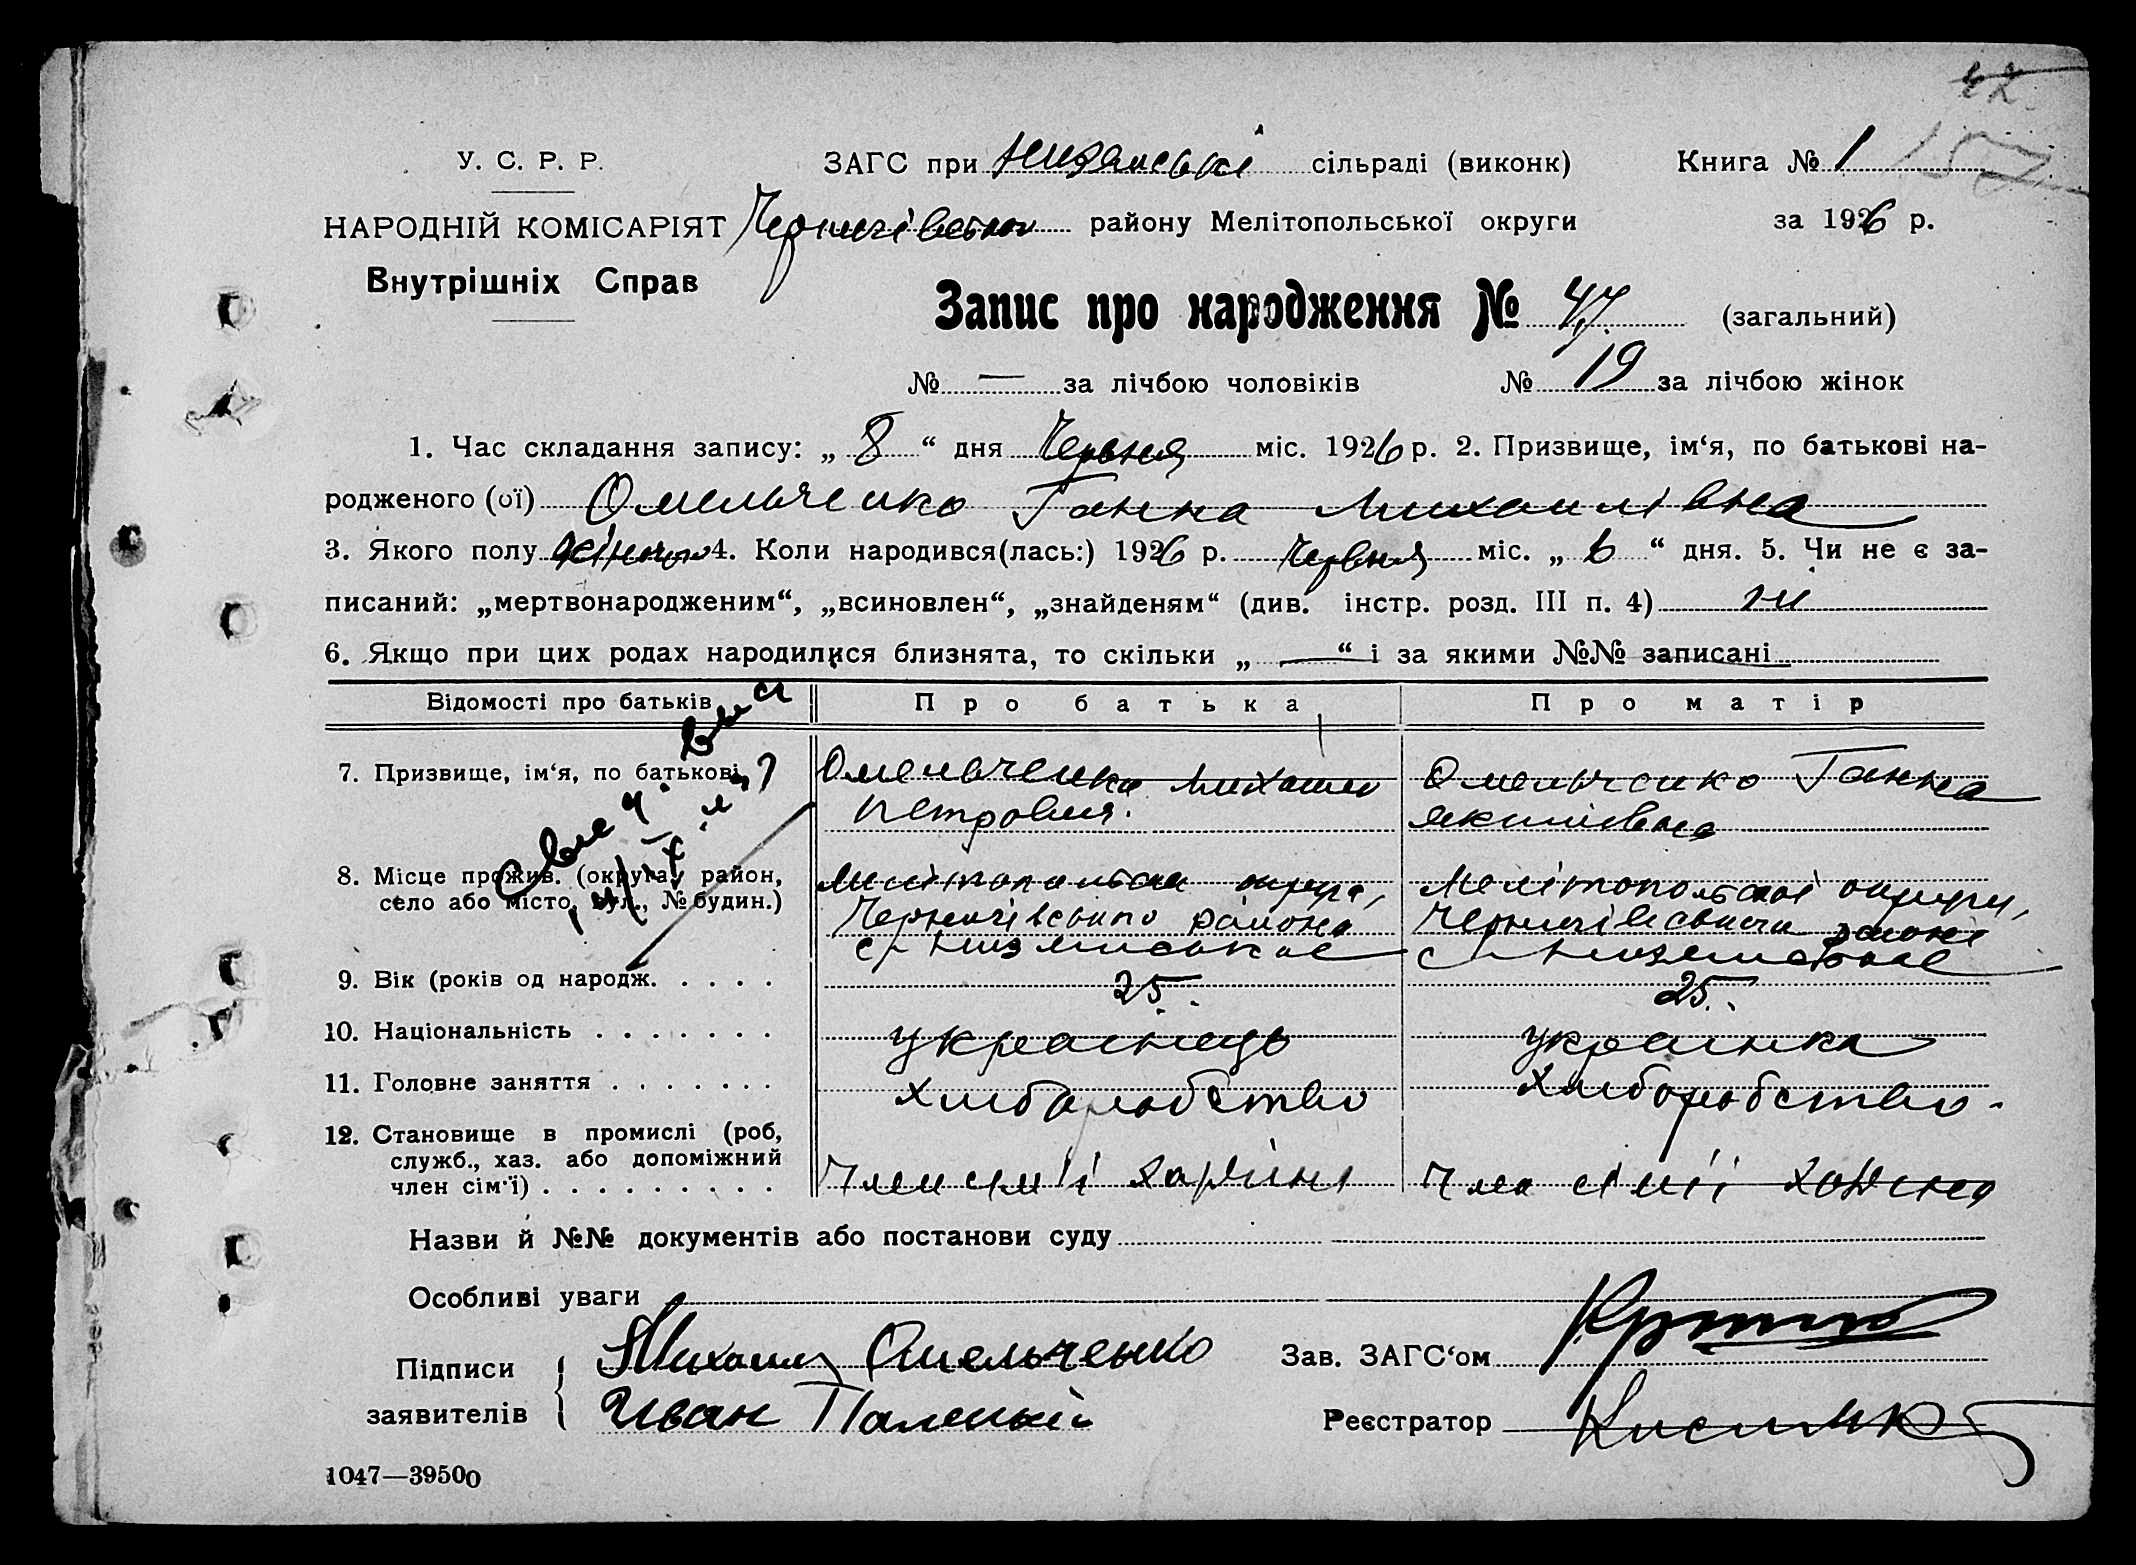 42
157
У. С. Р. Р. ЗАГС при Низянській сільраді (виконк) Книга № 1
НАРОДНІЙ КОМІСАРІЯТ Чернігівського району Мелітопольської округи за 1926 р.
Внутрішніх Справ
Запис про народження № 47 (загальний)
№ — за лічбою чоловіків № 19 за лічбою жінок
1. Час складання запису: „ 8 “ дня Червня міс. 1926 р. 2. Призвище, ім‘я, по батькові на-
родженого (ої) Омельченко Ганна Михаилівна
3. Якого полу жіночого 4. Коли народився(лась:) 1926 р. Червня міс. „ 6 “ дня. 5. Чи не є за-
писаний: „мертвонародженим“, „всиновлен“, „знайденям“ (див. інстр. розд. III п. 4) ні
6. Якщо при цих родах народилися близнята, то скільки „ — “ і за якими №№ записані
Відомості про батьків Про батька Про матір
7. Призвище, ім‘я, по батькові Омельченко Михаило Омельченко Ганна
Петрович. Якимівна
8. Місце прожив. (округа, район, Мелітопольска округа, Мелітопольскоі округи,
село або місто, вул., № будин.) Чернигівського района Чернигівського району
9. Вік (років од народж. . . . . 25. 25.
10. Національність . . . . . . . українець українка
11. Головне заняття . . . . . . . хліборобство хліборобство.
12. Становище в промислі (роб,
служб., хаз. або допоміжний
член сім‘ї) . . . . . . . . . Член сімї Член сімії
Назви й №№ документів або постанови суду
Особливі уваги
Підписи Михаил Омельченко Зав. ЗАГС‘ом
заявителів Иван Реєстратор
1047—39500